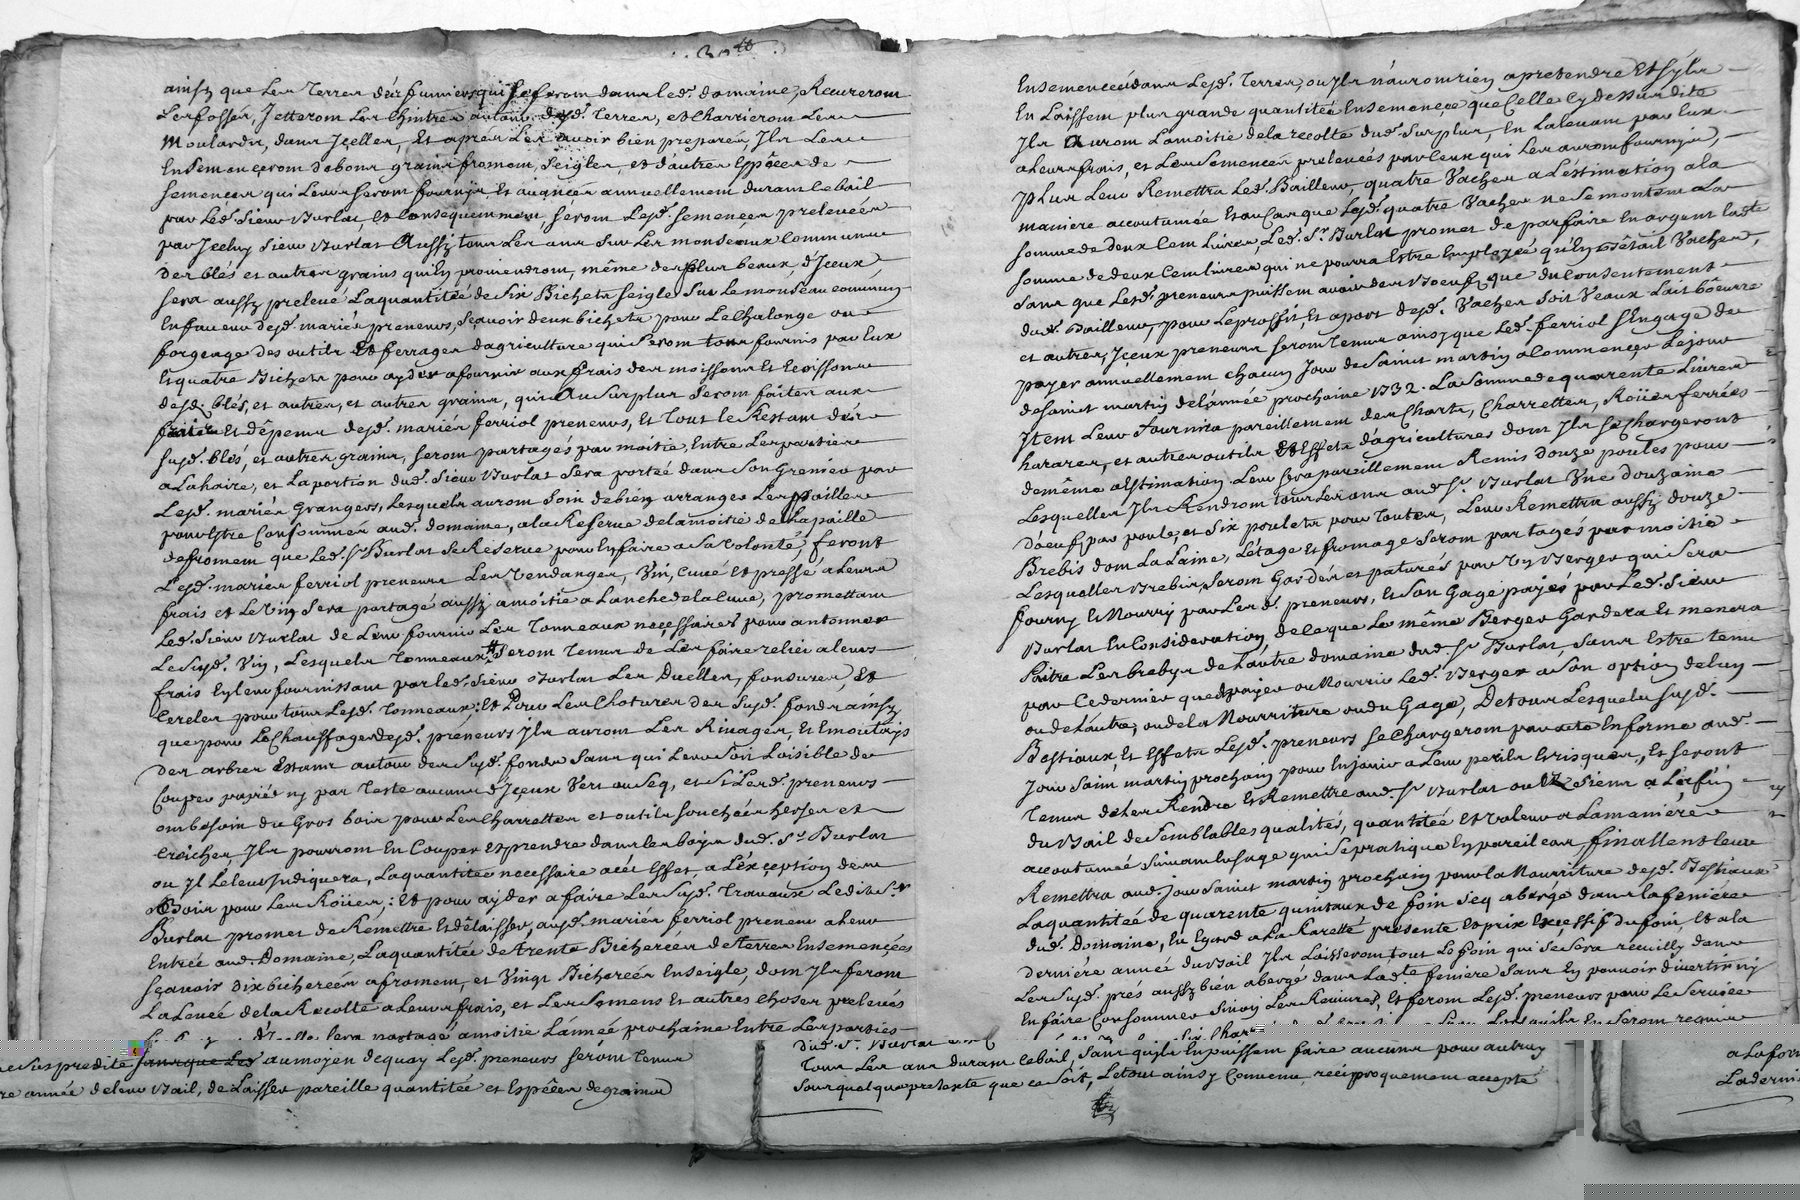 30tt
ainsy que Les Terres des fumiers qui se feront dans led. domaine, Recureront
Les fossés, Jetteront Les Chintres autour desd. Terres, et Charrieront Les
Moulards, dans Jcelles, Et aprés Les avoir bien preparés, Jls Les
Ensemonceront de bons grains froment, Seigles, et d'autres Espêces de
semences qui Leurs seront fournÿs Et avancés annuellement durant le bail
par Led. Sieur Burlat, Et Consequemment, seront Lesd. semençes prelevées
par Jceluy Sieur Burlat Aussy tous Les ans sur Les monseaux Communs
des blés et autres grains qu'En proviendront, même des plus beaux d'Jceux,
sera aussy prelevé La quantitée de Six Bichets seigle Sur Le monseau commun
En faveur desd. mariés preneurs, Sçavoir deux bichets pour Le Chalonge ou
forgeage des outils Et ferrages d'agriculture qui Seront tous fournis par Eux
Et quatre Bichets pour ayder a fournir aux frais des moissons Et
desd. blés, et autres, et autres grains, qui Au Surplus Seront faites aux
Et dêpens desd. mariés ferriol preneurs, Et Tout le Restant des
susd. blés, et autres grains, seront partagés par moitié, Entre Les parties
a La haire, et La portion dud. Sieur Burlat Sera portée dans Son Grenier par
Lesd. mariés Grangers, Lesquels auront Soin de bien arranger Les pailles
pour Estre Consommées aud. domaine, a la Reserve de la moitié de la paille
de froment que Led. Sr Burlat Se Réserve pour En faire a Sa Volonté, feront
Lesd. mariés ferriol preneurs Les Vendanges, Vin, Cuvé Et pressé a Leurs
frais et Le Vin Sera partagé aussy a moitié a Lanche de la Cuve, promettant
Led. Sieur Burlat de Leur fournir Les Tonneaux necessaires pour antonner
Le Susd. Vin, Lesquels Tonneaux Seront Tenus de Les faire relier a leurs
frais En leur fournissant par led. Sieur Burlat Les Duelles, fonsures, Et
Cercles pour tous Lesd. Tonneaux; Et Pour Les Clotures des Susd. fonds ainsy
que pour Le Chauffage desd. preneurs Jls auront Les Rivages, Et Emoutajs
Des arbres Estant autour des Susd. fonds Sans qui Leur Soit Loisible de
Couper par pié ny par Teste aucuns d'Jçeux Vert ou Seq, et Si Lesd. preneurs
ont besoin du Gros bois pour Les Charrettes et outils
Jls pourront En Couper Et prendre dans les bois dud. Sr Burlat
ou Jl Le leur Jndiquera, La quantitée necessaire a cet Effet, a L'Exçeption des
Bois pour Les Roües; Et pour ayder a faire Les Susd. Travaux Ledit Sr
Burlat promet de Remettre Et dêlaisser, ausd. mariés ferriol preneurs a Leur
Entrée aud. Domaine, La quantitée de Trente Bicherées de Terres Ensemencées
Sçavoir dix bicherées a froment, et Vingt Bicherées En seigle, dont Jls feront
La Levée de la Récolte a Leurs frais, et Les Semens Et autres choses prelevés
Sera partagé a moitié L'année prochaine Entre Les parties
Suspredite au moyen de quoy Lesd. preneurs seront Tenus
année de leur Bail, de Laisser pareille quantitée et Espêces de grains
Ensemencées dans Lesd. Terres, ou Jls n'auront rien a pretendre Et Sy Jls
En Laissent plus grande quantitée Ensemencée que Celle Cy dessus dite
Jls Auront La moitié de la récolte dud. Surplus, En La levant par Eux
a Leurs frais, et Les Semences prelevées par Ceux qui Les auront fournÿs,
Plus Leur Remettra Led. Bailleur, quatre Vaches a L'éstimation a la
maniere accoutumée Et au Cas que Lesd. quatre Vaches ne Se montent a La
somme de deux Cent Livres, Led. Sr Burlat promet de parfaire En argent ladte
somme de deux Cent livres qui ne pourra Estre Employée qu'En bêtail Vaches,
sans que Lesd. preneurs puissent avoir des Boeufs que du Consentement
dud. Bailleur, pour Le proffit, Et aport desd. Vaches Soit Veaux Lait beurre
et autres, Jçeux preneurs seront Tenus ainsy que Led. ferriol S'Engage de
payer annuellement Chacun Jour de Saint martin a Commencer Le jour
de Saint martin de L'année prochaine 1732. La Somme de quarente Livres
Jtem Leur fournira pareillement des Chars, Charrettes, Roües ferrées
harares, et autres outils Et Effets d'agricultures dont Jls se Chargeront
de même a Estimation, Leur Sera pareillement Remis douze poules pour
Lesquelles Jls Rendront tous Les ans aud. Sr Burlat Une douzaine
D'oeufs par poules et Six poulets pour Toutes, Leur Remettra aussy douze
Brebis dont La Laine, L'étage Et fromage Seront partagés par moitié
Lesquelles Brebis, Seront Gardées et paturés par Un Berger qui Sera
fourny Et Nourry par Les d. preneurs, Et Son Gage payés par Led. Sieur
Burlat En Consideration, de la que Le même Berger Gardera Et menera
Paitre Les brebys de L'autre domaine dud. Sr Burlat, Sans Estre tenu
par Ce dernier que payer ou Nourrir Led. Berger a Son option de l'un
ou de L'autre, ou de la Nourriture ou du Gage, De tous Lesquels Susd.
Bestiaux, Et Effets Lesd. preneurs Se Chargeront par acte En forme aud.
Jour Saint martin prochain pour En Jouir a Leur perils Et risques, Et Seront
Tenus de les Rendre Et Remettre aud. Sr Burlat ou aux Siens a La fin
du Bail de Semblables qualités, quantitée Et Valeur a La maniére
accoutumée Suivant L'usage qui Se pratique En pareil cas, finallent Leur
Remettra aud. jour Saint martin prochain pour La Nourriture desd. Bestiaux
La quantitée de quarente quintaux de foin Seq abergé dans La feniére
dud. Domaine, En Egard a La Rareté presente Et prix Exçessif du foin, Et a la
derniére année du Bail Jls Laisseront tout Le foin qui Se Sera recueilly dans
Les Susd. prés aussy bien abergé dans Ladte feniére Sans En pouvoir divertir ny
En faire Consommer Sinon Les Reviures, Et feront Lesd. preneurs pour Le Service
dud. Sr Burlat
Tous Les ans durant le bail, Sans quils En puissent faire aucuns pour autruy
Sous quel que pretexte que ce Soit, Le tout ainsy Convenu, reciproquement accepté
a La for
La derni